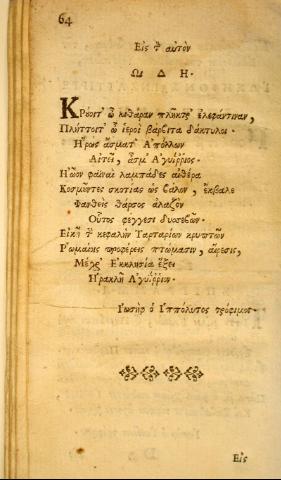 64
Εἰς τ̃ αὐτὸν
Ω Δ Η·
Κρούειτ' ὦ κιθάραν πλῆκτρ' ἐλεφάντιναν,
Πλήττοιτ' ὦ ἱεροὶ βάρβιτα δάκτυλοι·
Ἥρως ἄσματ' Ἀπόλλων
Αἰτεῖ, ἄσμ' Ἀγυίῤῥιος·
Ἠὼν φαῖναι λαμπάδες αἰθέρα
Κοσμῦντες σκοτίας ὡς ζάλον, ἔκβαλε
Φανθεὶς θάρσος ἀλαζὸν
Οὗτος φέγγεσι δυσσεβῶν·
Εἰκῆ τ̃ κεφαλὴν Ταρταρίων κρυπτῶν
Ῥωμαίης προφέρεις πτώμασιν, αἵρεσις,
Μέχρ' Ἐκκλησία ἕξει
Ἡρακλῆ Ἀγυίῤῥιον·
Ἰωσὴφ ὁ Ἱππόλυτος τρόφιμος·
Εἰς